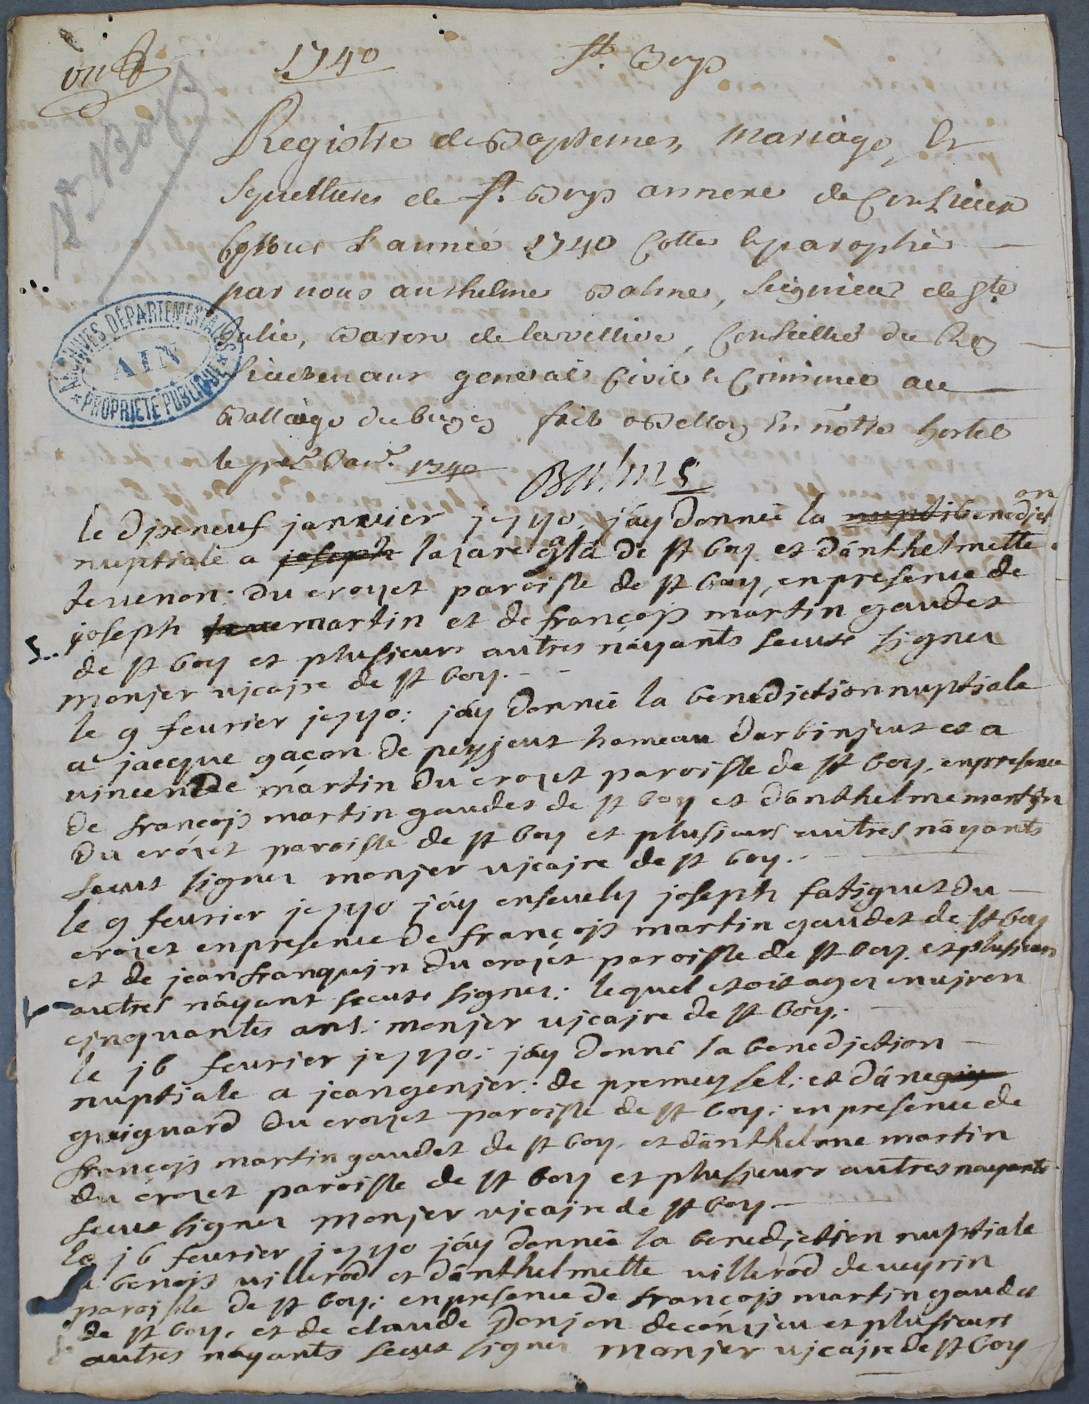 1740 St. Boys
St Boys
Registre de Baptemes, Mariage, Et
Sepultures de St. Boys annexe de
pour L'année 1740 Cotté & parophé
par nous anthelme Balme, Seigneur de Ste
Julie, Baron de la velliere, Conseiller du Roy
Lieutenant general Civil & Criminel au
Balliage du bugey fait a Belley En notre hostel
le per. Janr. 1740
Balme
ARCHIVES DEPARTEMENTALES
AIN
* PROPRIETE PUBLIQUE *
le djxeneuf janvier j7740, j'ay donnée la nupti benedjction
nuptiale a joseph lazare de st boy et d'anthelmette
tevenon du crozet paroisse de st boy, en presence de
joseph martin et de françojs martin gaudet
de st boy et plusjeurs autres n'ayants sceut signer
monjer vjcajre de st boy.
le 9 fevrier j7740: j'ay donnée la benedjction nuptiale
a jacque gaçon de peyzjeut hameau d'arbinjeut et a
vincende martin du crozet paroisse de st boy, en presence
de françojs martin gaudet de st boy et d'anthelme martjn
du crozet paroisse de st boy et plusjeurs autres n'ayants
sceut signer monjer vjcajre de st boy.
le 9 fevrier j7740 j'ay ensevely joseph fatiguet du
crozet en presence de françojs martin gaudet de st boy
et de jean franquin du crozet paroisse de st boy et plusjeurs
autres n'ayant sceuts signer: lequel etoit agez envjron
cjnquantes ans: monjer vjcajre de st boy.
le j6 fevrier j7740: j'ay donné la benedjction
nuptjale a jean genjer: de premeysel: et d'ane
guiguard du crozet paroisse de st boy: en presence de
françojs martin gaudet de st boy et d'anthelme martin
du crozet paroisse de st boy et plusjeurs autres nayants
sceut signer monjer vjcajre de st boy
le j6 fevrier j7740 j'ay donnée la benedjction nuptiale
a benojs villerod et d'anthelmette villerod de veyrin
parojsse de st boy: en presence de françojs martin gaudet
de st boy, et de claude Ponjon de conzjeu et plusjeurs
autres nayants sceut signer monjer vjcajre de st boy